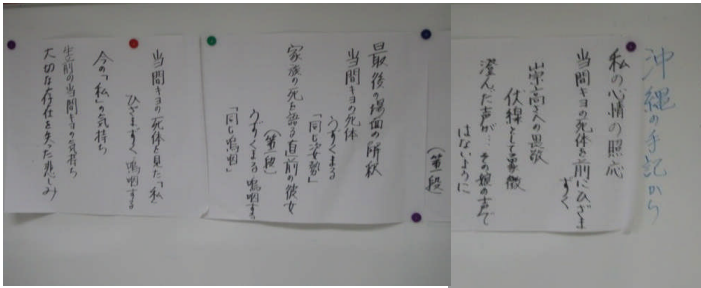 沖縄の手記から
私の心情の照応
当間キヨの死体の前にひざまずく
崇高さへの畏敬
伏線としての象徴
澄んだ声が…その娘の声で
はないように
(第一段)
最後の場面の解釈
当間キヨの死体
うずくまる
「同じ姿勢」
(第一段)
家族の死を語る直前の彼女
うずくまる嗚咽する
「同じ嗚咽」
当間キヨの死体を見た「私」
ひざまずく 嗚咽する
今の「私」の気持ち
生前の当間キヨの気持ち
大切な存在を失った悲しみ